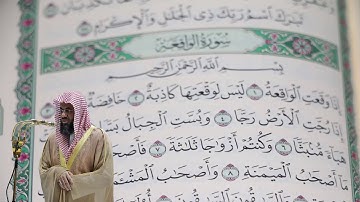 تَبَٰرَكَ ٱسْمُ رَبِّكَ ذِى ٱلْجَلَٰلِ وَٱلْإِكْرَامِ
سُورَةُ الوَاقِعَةِ
بِسْمِ ٱللَّهِ ٱلرَّحْمَٰنِ ٱلرَّحِيمِ
إِذَا وَقَعَتِ ٱلْوَاقِعَةُ ١ لَيْسَ لِوَقْعَتِهَا كَاذِبَةٌ ٢ خَافِضَةٌ
إِذَا رُجَّتِ ٱلْأَرْضُ رَجًّا ٤ وَبُسَّتِ ٱلْجِبَالُ بَسًّا
هَبَآءً مُّنۢبَثًّا ٦ وَكُنتُمْ أَزْوَٰجًا ثَلَٰثَةً ٧ فَأَصْحَٰبُ
ٱلْمَيْمَنَةِ ٨ وَأَصْحَٰبُ ٱلْمَشْـَٔمَةِ